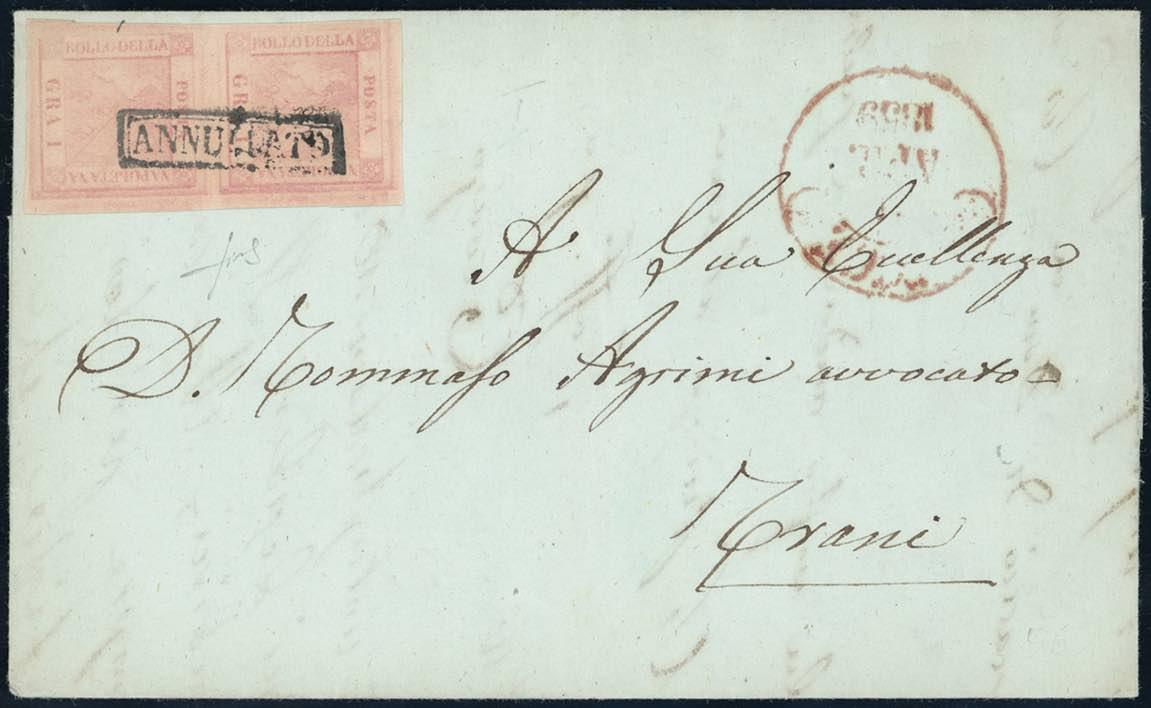 BOLLO DELLA POSTA NAPOLETANA GRA 1
BOLLO DELLA POSTA GRA
ANNULLATO
1859
A Sua Eccellenza
D. Tommaso Agrimi avvocato
Trani